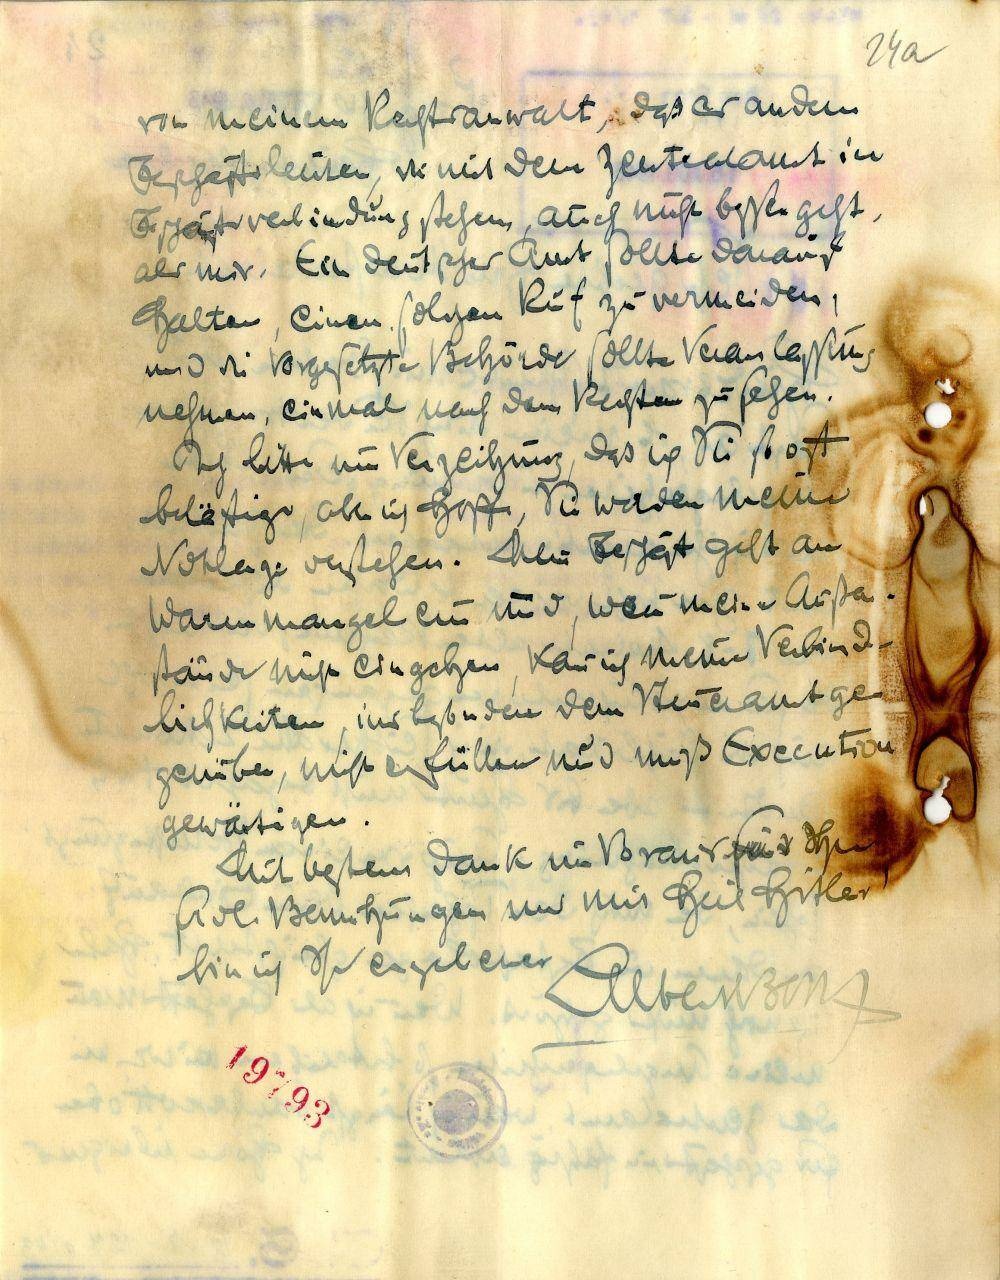 24a
von meinem Rechtsanwalt, daß es andern
Geschäftsleuten, die mit dem Zentralamt in
Geschäftsverbindung stehen, auch nicht besser geht,
als mir. Ein deutscher Amt sollte darauf
halten, einen solchen Ruf zu vermeiden,
und die vorgesetzte Behörde sollte Veranlassung
nehmen, einmal nach dem Rechten zu sehen.
Ich bitte um Verzeihung, daß ich Sie so oft
belästige, aber ich hoffe, Sie werden meine
Notlage verstehen. Mein Geschäft geht an
Warenmangel ein und, wenn meine Außen-
stände nicht eingehen, kann ich meine Verbind-
lichkeiten, insbesondere dem Steueramt ge-
genüber, nicht erfüllen und muß Execution
gewärtigen.
Mit bestem Dank im Voraus für Ihre
frdl. Bemühungen und mit Heil Hitler!
bin ich Ihr ergebener
Albert
19793